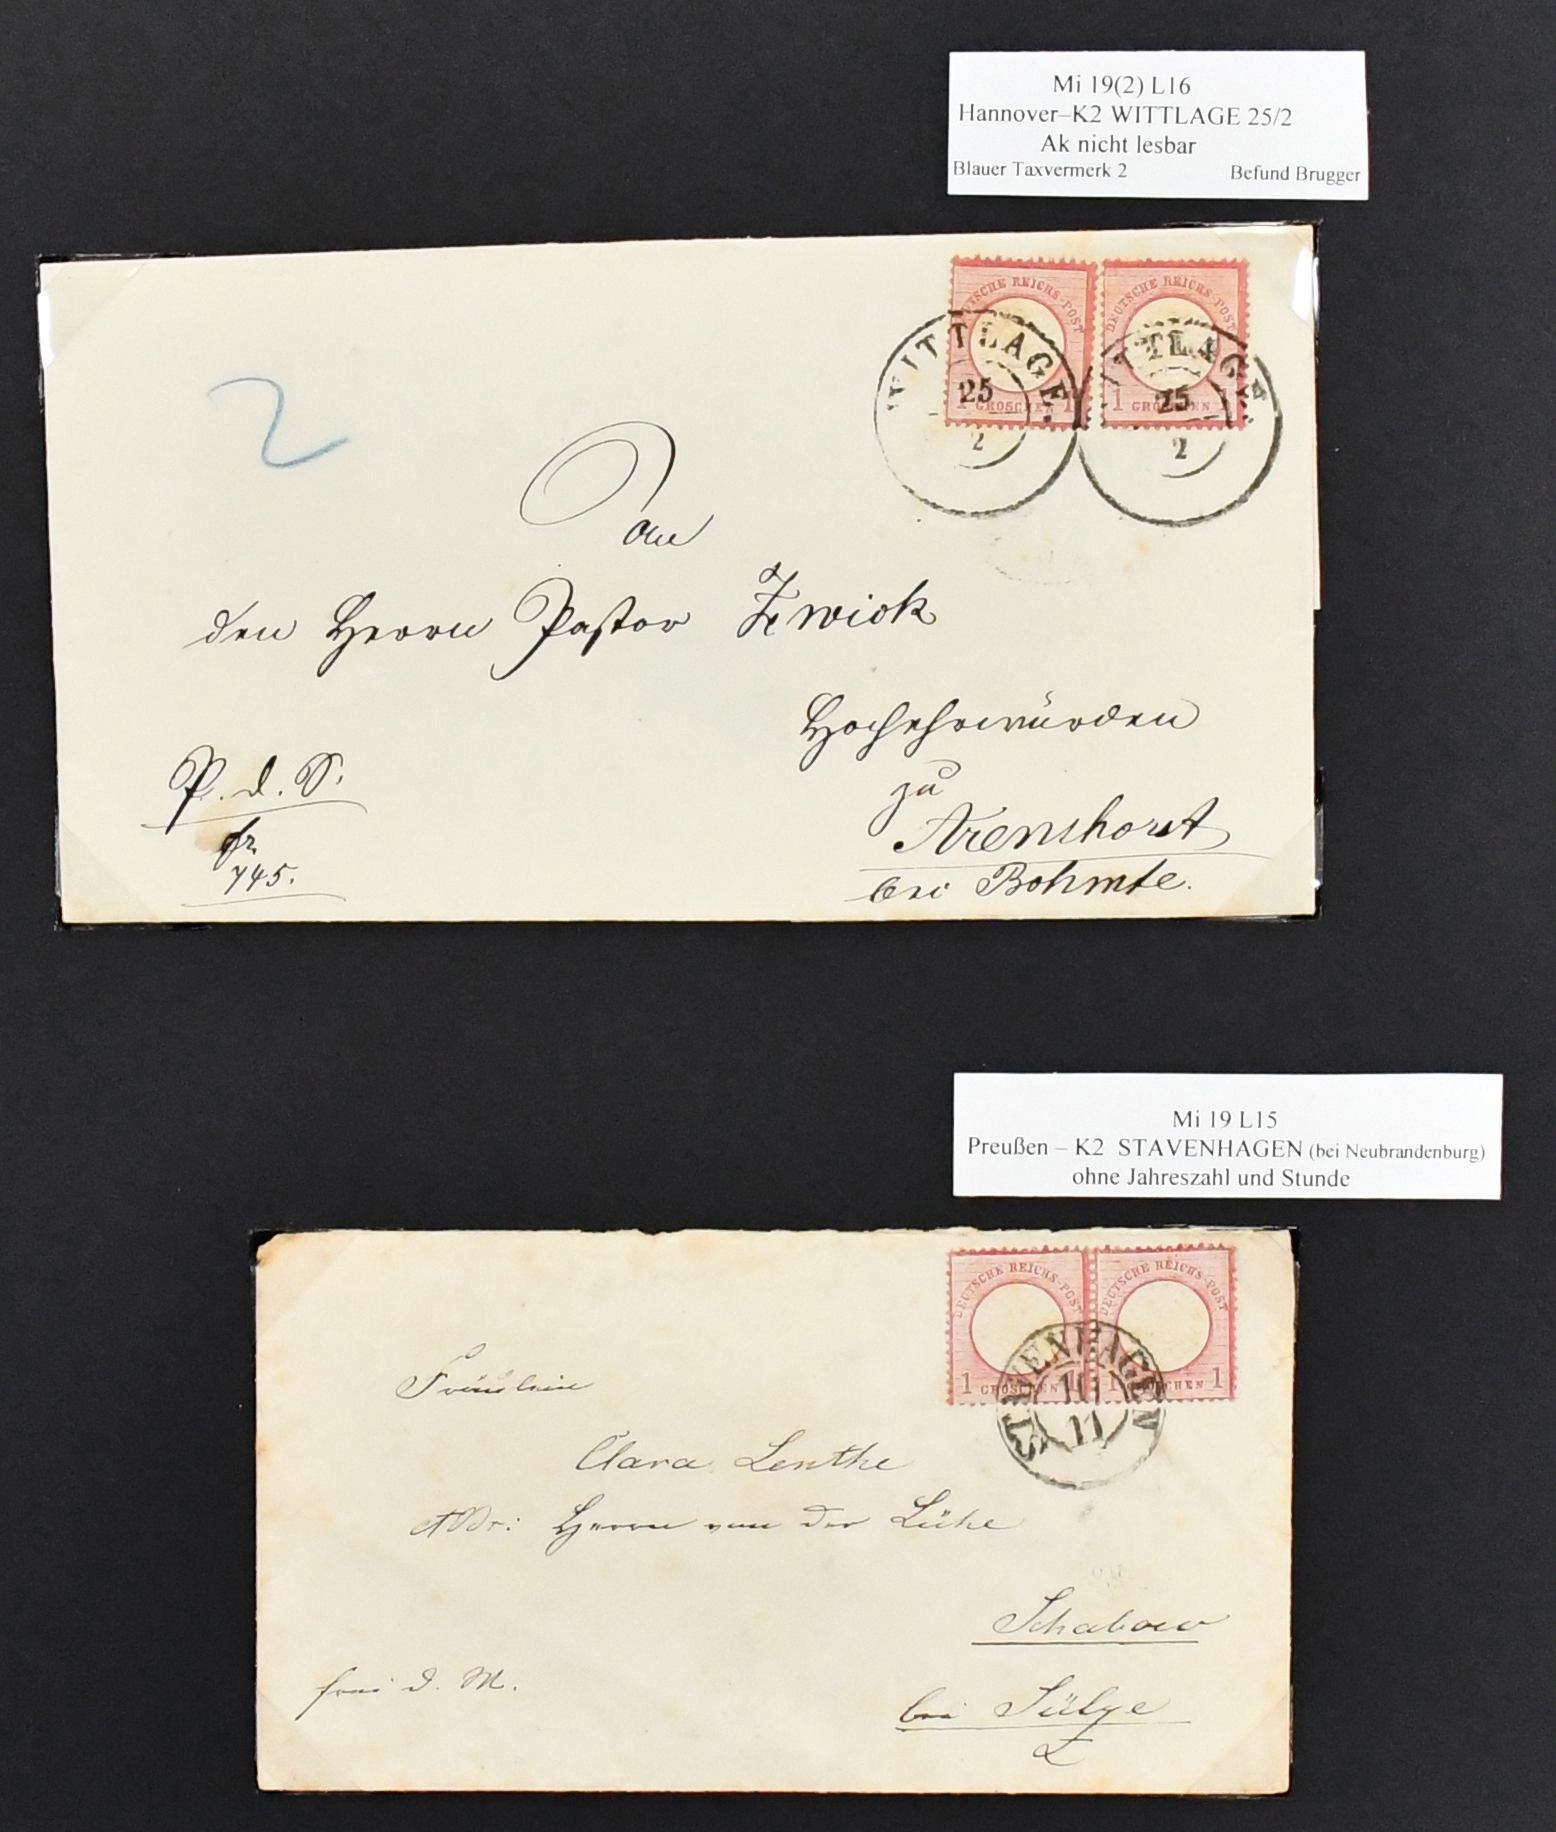 Mi 19(2) L16
Hannover–K2 WITTLAGE 25/2
Ak nicht lesbar
Blauer Taxvermerk 2 Befund Brugger
DEUTSCHE REICHS-POST DEUTSCHE REICHS-POST
1 GROSCHEN 1 1 GROSCHEN 1
WITTLAGE WITTLAGE
25 25
2 2
2
An
den Herrn Pastor Zwick
Hochehrwürden
zu
Arenshorst
bei Bohmte.
P. d. S.
fr.
745.
Mi 19 L15
Preußen – K2 STAVENHAGEN (bei Neubrandenburg)
ohne Jahreszahl und Stunde
DEUTSCHE REICHS-POST DEUTSCHE REICHS-POST
1 GROSCHEN 1 1 GROSCHEN 1
STAVENHAGEN
11
Fräulein
Clara Lenthe
Adr: Herrn von der Lühe
Schabow
bei Sülze
frei d. M.